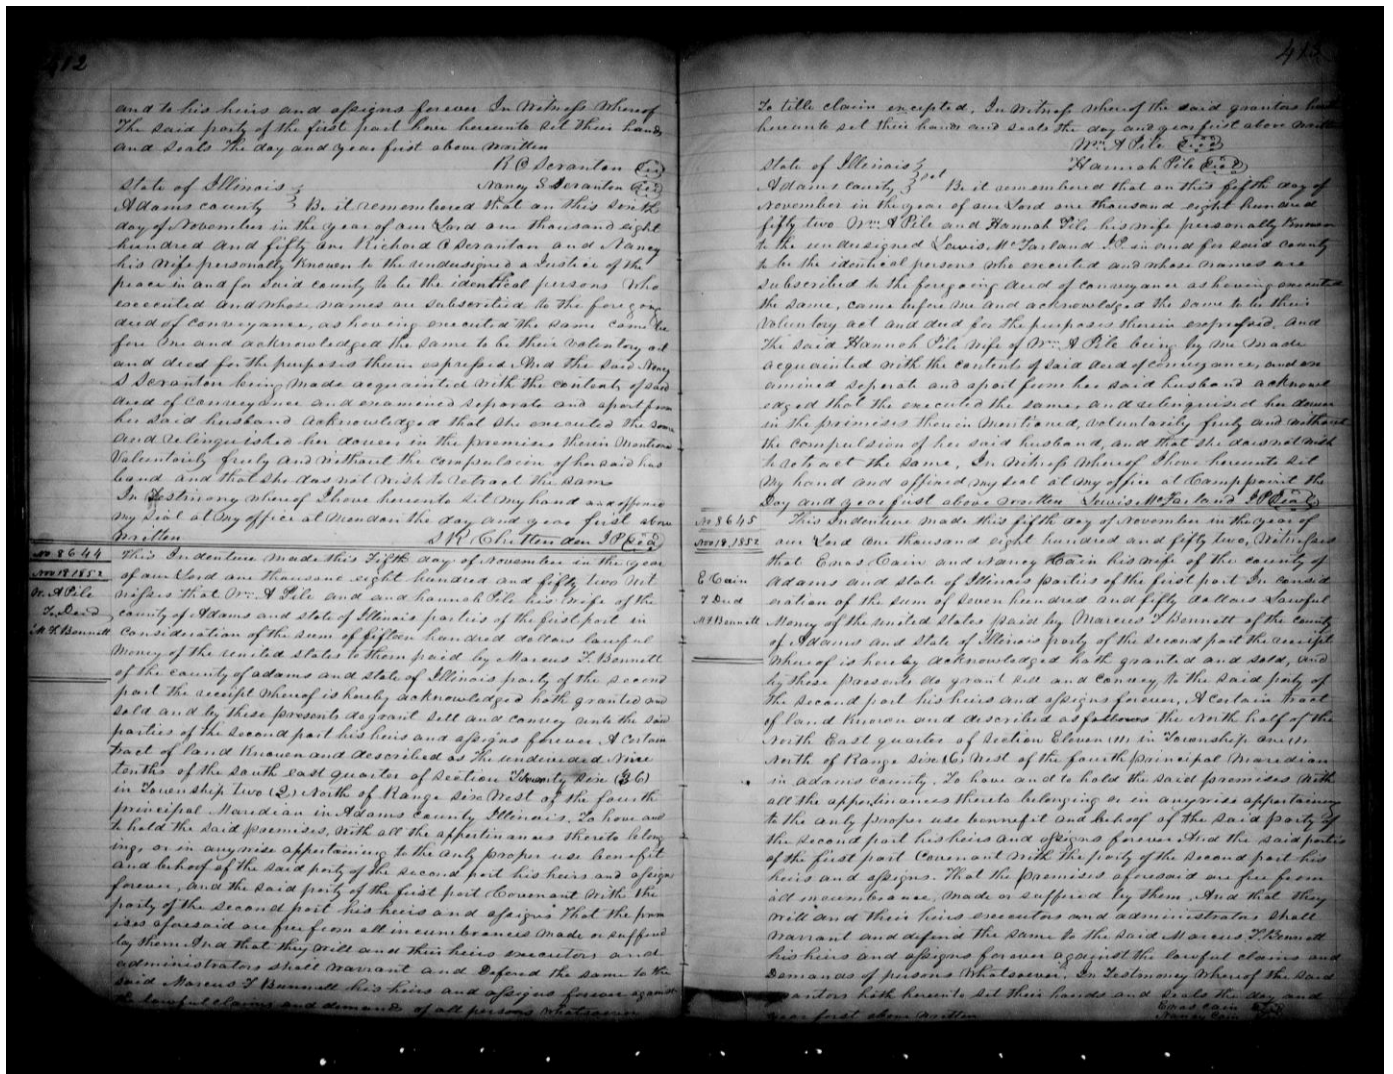 412
and to his heirs and assigns forever In Witness Whereof
The said party of the first part have hereunto set their hands
and seals the day and year first above written
R C Scranton Seal
Nancy S Scranton Seal
State of Illinois
Adams county Be it remembered that on this sixth
day of November in the year of our Lord one thousand eight
hundred and fifty one Richard C Scranton and Nancy
his wife personally known to the undersigned a Justice of the
peace in and for said county to be the identical persons who
executed and whose names are subscribed to the foregoing
deed of conveyance, as having executed the same came be
fore me and acknowledged the same to be their voluntary act
and deed for the purposes therein expressed And the said Nancy
S Scranton being made acquainted with the contents of said
deed of conveyance and examined separate and apart from
her said husband acknowledged that she executed the same
and relinquished her dower in the premises therein mentioned
Voluntarily freely and without the compulsion of her said hus
band and that she does not wish to retract the same
In Testimony whereof I have hereunto set my hand and affixed
my seal at my office at Mendon the day and year first above
written S R Chittenden J P Seal
No 8644
Nov 18 1852
W. A Pile
To Deed
M F Bennett
This Indenture made this Fifth day of November in the year
of our Lord one thousand eight hundred and fifty two Wit
nesses that Wm A Pile and and hannah Pile his wife of the
county of Adams and state of Illinois parties of the first part in
consideration of the sum of fifteen hundred dollars lawful
money of the united states to them paid by Marcus F. Bennett
of the county of adams and state of Illinois party of the second
part the receipt whereof is hereby acknowledged hath granted and
sold and by these presents do grant sell and convey unto the said
parties of the second part his heirs and assigns forever A certain
tract of land known and described as The undivided Nine
tenths of the south east quarter of section Twenty six (36)
in Township two (2) North of Range six West of the fourth
principal Maridian in Adams county Illinois. To have and
to hold the said premises, with all the appertinances thereto belong
ing, or in anywise appertaining to the only proper use benefit
and behoof of the said party of the second part his heirs and assigns
forever, and the said party of the first part Covenant with the
party of the second part his heirs and assigns That the prem
ises aforesaid are free from all incumberances made or suffered
by them And that they will and their heirs executors and
administrators shall warrant and Defend the same to the
said Marcus F Bennett his heirs and assigns forever against
the lawful claims and demands of all persons whatsoever
To title claim excepted. In Witness whereof the said grantors
hereunto set their hands and seals the day and year first above written
Wm A Pile Seal
Hannah Pile Seal
State of Illinois
Adams county Be it remembered that on this fifth day of
November in the year of our Lord one thousand eight hundred
fifty two Wm A Pile and Hannah Pile his wife personally known
to the undersigned Lewis McFarland J P in and for said county
to be the identical persons who executed and whose names are
subscribed to the foregoing deed of conveyance as having executed
the same, came before me and acknowledged the same to be their
Voluntary act and deed for the purposes therein expressed. And
The said Hannah Pile wife of Wm A Pile being by me made
acquainted with the contents of said deed of conveyance, and ex
amined seperate and apart from her said husband acknowl
edged that she executed the same, and relinquised her dower
in the primises therein mentioned, voluntarily freely and without
the compulsion of her said husband, and that she does not wish
to retract the same. In Witness whereof I have hereunto set
my hand and affixed my seal at my office at Camp point the
Day and year first above written Lewis McFarland J P Seal
No 8645
Nov 18, 1852
E Cain
T Deed
M F Bennett
This Indenture made this fifth day of November in the year of
our Lord one thousand eight hundred and fifty two, Witnesses
that Enos Cain and Nancy Cain his wife of the county of
Adams and state of Illinois parties of the first part In consid
eration of the sum of seven hundred and fifty dollars Lawful
Money of the united States paid by Marcus F Bennett of the county
of Adams and state of Illinois party of the second part the receipt
whereof is hereby acknowledged hath granted and sold, and
by these Presents do grant sell and convey to the said party of
the second part his heirs and assigns forever, A certain tract
of land known and described as follows the North half of the
North East quarter of section Eleven 11 in Township one 1
North of Range six (6) West of the fourth principal Maridian
in adams county. To have and to hold the said premises with
all the appertinances thereto belonging or in anywise appertaining
to the only proper use bennefit and behoof of the said party of
the second part his heirs and assigns forever And the said parties
of the first part Covenant with the party of the second part his
heirs and assigns. That the premises aforesaid are free from
all incumbrance, made or suffered by them, And that they
will and their heirs executors and administrators shall
warrant and defend the same to the said Marcus F. Bennett
his heirs and assigns forever against the lawful claims and
Demands of persons whatsoever. In Testimoney whereof the said
grantors hath hereunto set their hands and seals the day and
year first above written
Enos Cain Seal
Nancy Cain